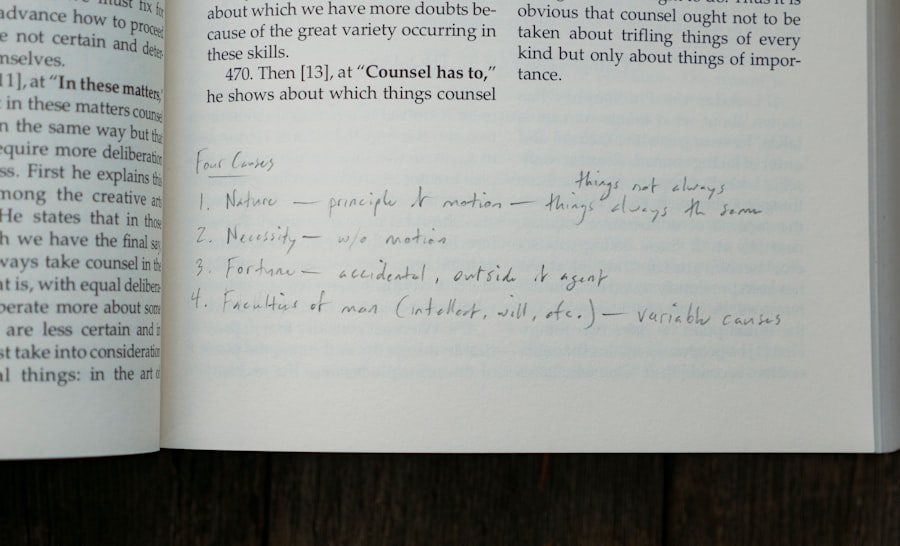 must fix for
advance how to proceed
e not certain and deter-
nselves.
11], at “In these matters,”
in these matters counse
n the same way but tha
equire more deliberation
ss. First he explains this
mong the creative arts
He states that in those
h we have the final say
ways take counsel in the
at is, with equal delibera-
perate more about some
are less certain and in
st take into consideration
al things: in the art of
about which we have more doubts be-
cause of the great variety occurring in
these skills.
470. Then [13], at “Counsel has to,”
he shows about which things counsel
obvious that counsel ought not to be
taken about trifling things of every
kind but only about things of impor-
tance.
Four Causes
things not always
1. Nature — principle of motion — things always the same
2. Necessity — w/o motion
3. Fortune — accidental, outside agent
4. Faculties of man (intellect, will, etc.) — variable causes